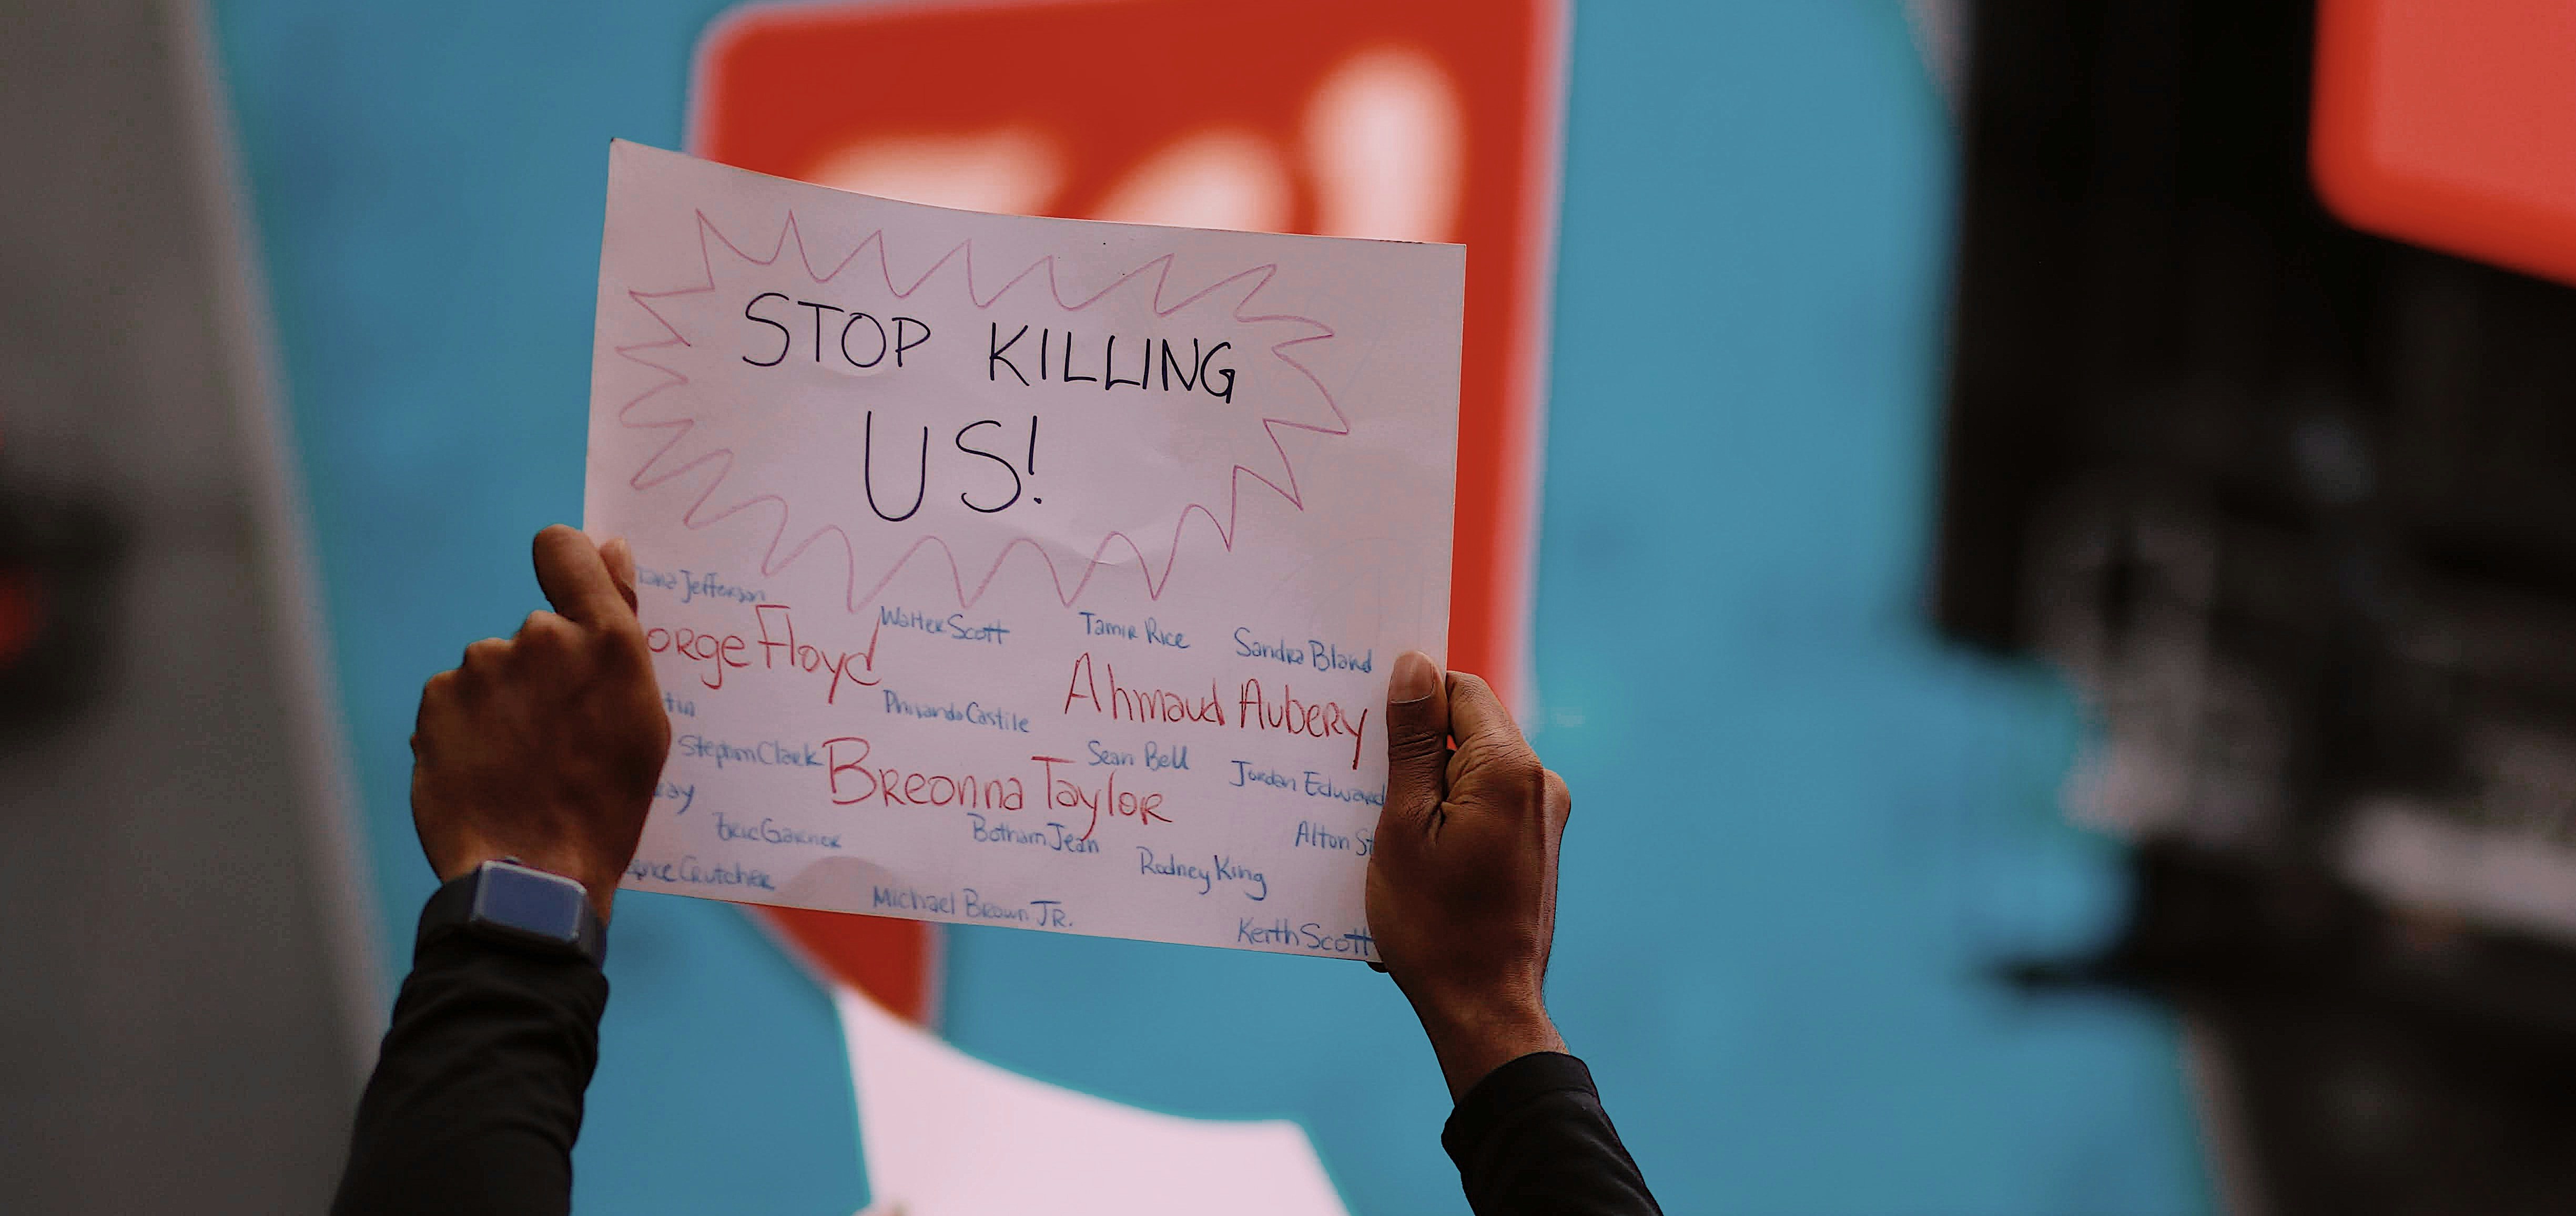 STOP KILLING
US!
Jefferson
Walter Scott
Tamir Rice
Sandra Bland
orge Floyd
Ahmaud Aubery
tin
Philando Castile
Stephon Clark
Breonna Taylor
Sean Bell
Jordan Edward
ay
Eric Garner
Botham Jean
Alton St
Rodney King
Crutcher
Michael Brown JR.
Keith Scott